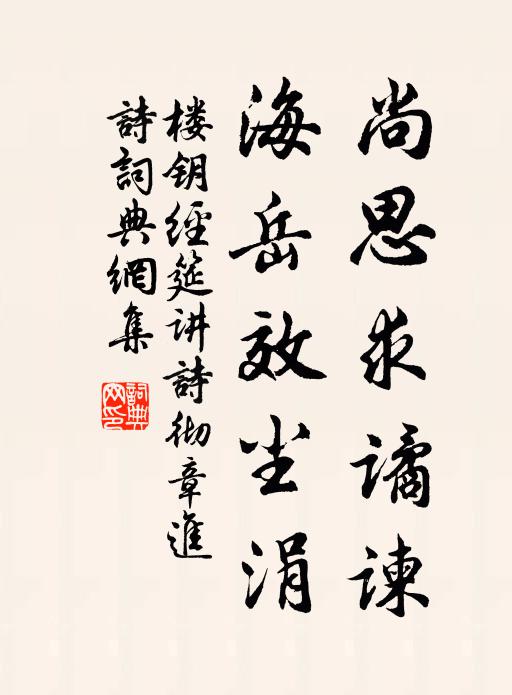 尚思求谲谏
海岳效尘涓
楼钥經筵讲詩彻章進
詩詞典網集
詞典
网印